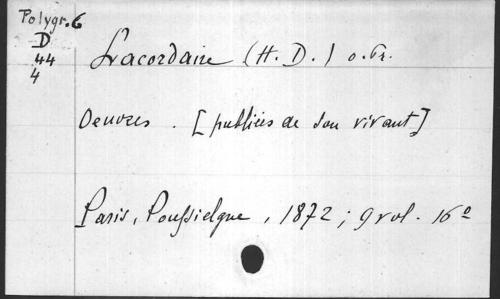 Polygr. 6
D
44
4
Lacordaire (H. D.) o. Pr.
Oeuvres. [publiées de son vivant]
Paris, Poussielgue, 1872 ; 9 vol. 16º